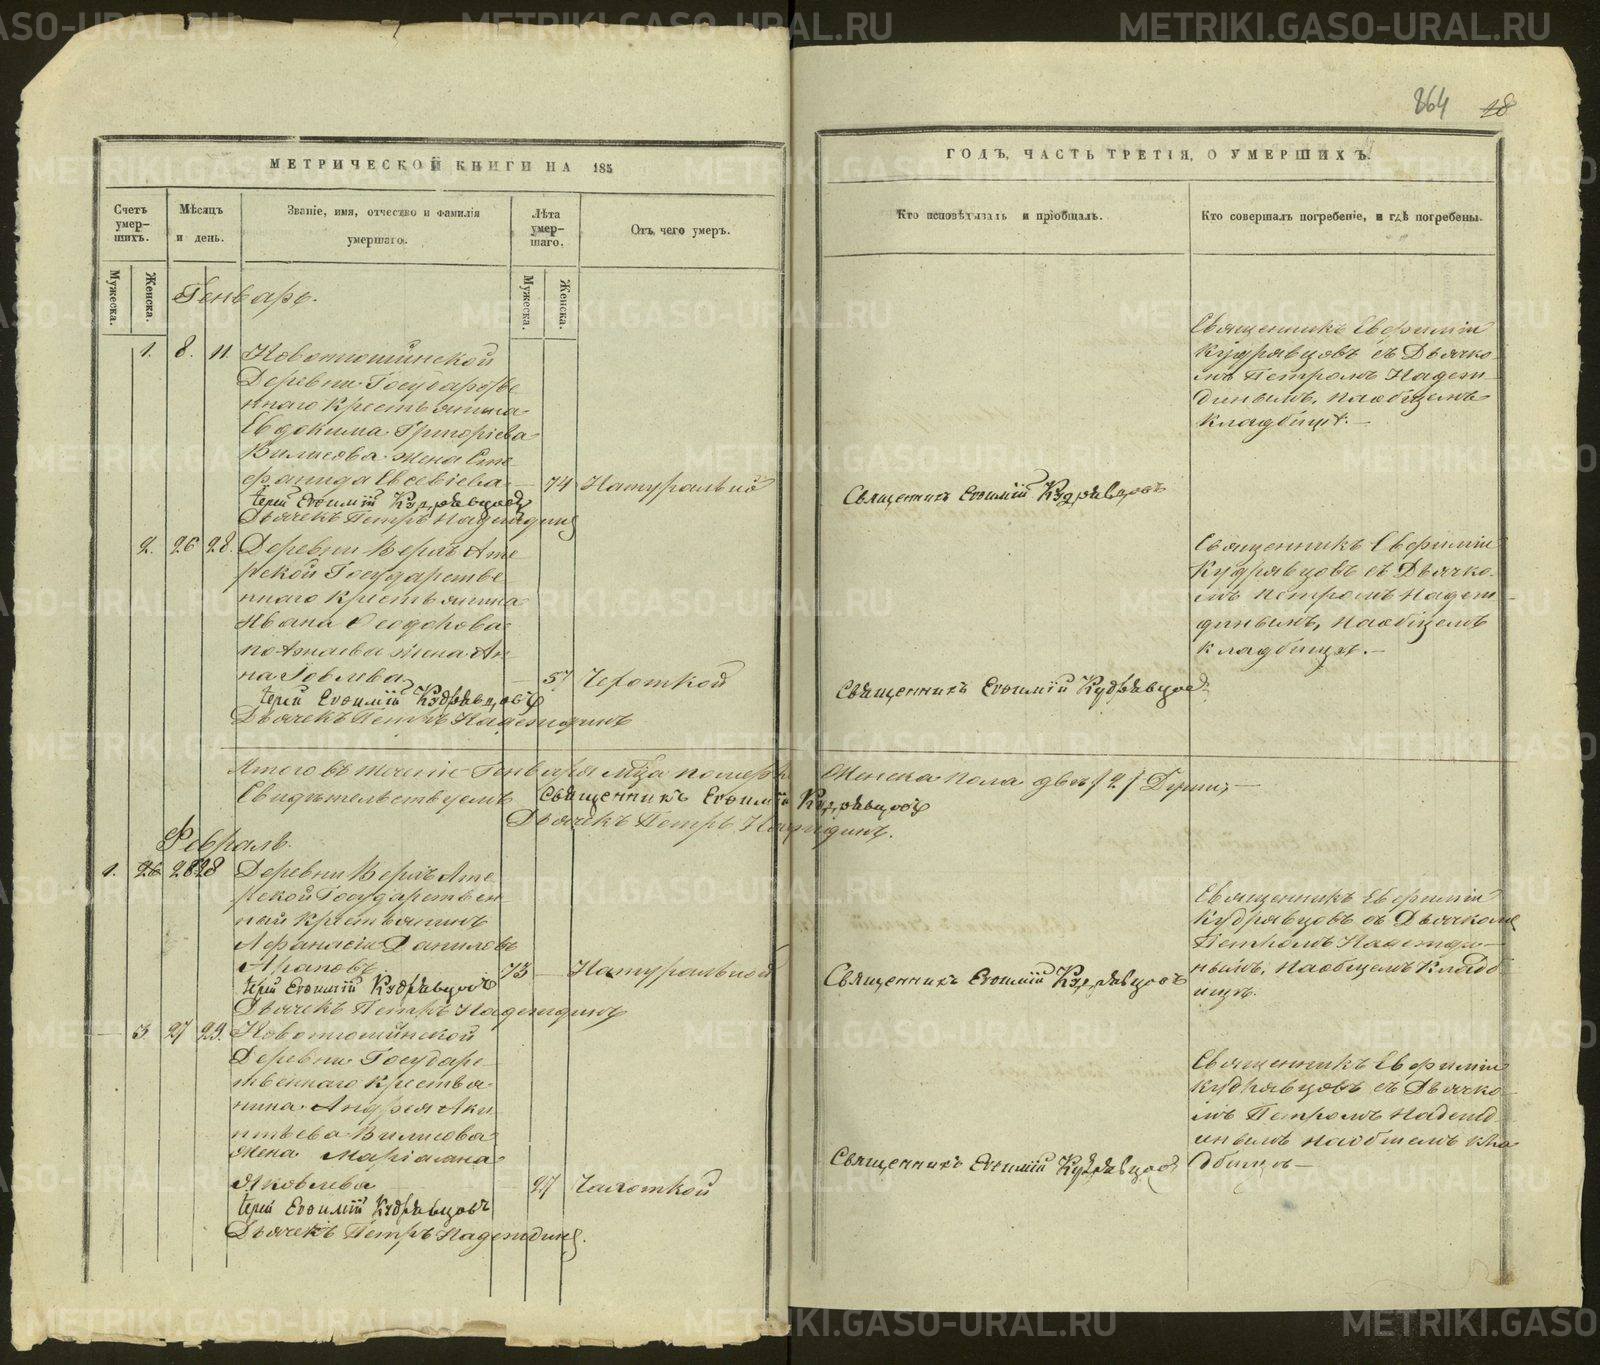 864 28
МЕТРИЧЕСКОЙ КНИГИ НА 185
ГОДЪ, ЧАСТЬ ТРЕТІЯ, О УМЕРШИХЪ.
Счетъ умер-шихъ.
Мѣсяцъ и день.
Званіе, имя, отчество и фамилія умершаго.
Лѣта умер-шаго.
Отъ чего умеръ.
Кто исповѣдывалъ и пріобщалъ.
Кто совершалъ погребеніе, и гдѣ погребены.
Мужеска. Женска.
Мужеска. Женска.
Генварь.
1. 8. 11. Новотошинской
Деревни Государстве
ннаго Крестьянина
Евдокима Григоріева
Вилисова жена Сте
фанида Евсевіева 74 Натуральной
Іерей Евѳимій Кудрявцовъ
Дьячекъ Петръ Надеждинъ
Священникъ Евѳимій Кудрявцовъ
Священникъ Евфимій
Кудрявцовъ съ Дьячко
мъ Петромъ Надеж
динымъ, наобщемъ
кладбищѣ.
2. 26 28. Деревни Верхъ Ате
рской Государстве
ннаго Крестьянина
Ивана Ѳеодорова
жена Ан
на 57 Чехоткой
Іерей Евѳимій Кудрявцовъ
Дьячекъ Петръ Надеждинъ
Священникъ Евѳимій Кудрявцовъ
Священникъ Евфимій
Кудрявцовъ съ Дьячко
мъ Петромъ Надеж
динымъ, наобщемъ
кладбищѣ.
Итого въ теченіе Генваря м̃ца померло Женска пола двѣ /2/ Души,
Свидѣтельствуемъ Священникъ Евѳимій Кудрявцовъ
Дьячекъ Петръ Надеждинъ.
Февраль.
1. 26 28 28 Деревни Верхъ Ате
рской Государствен
ный Крестьянинъ
Афанасій Даниловъ
Араповъ 73 Натуральной
Іерей Евѳимій Кудрявцовъ
Дьячекъ Петръ Надеждинъ
Священникъ Евѳимій Кудрявцовъ
Священникъ Евфимій
Кудрявцовъ съ Дьячкомъ
Петромъ Надежди
нымъ, наобщемъ Кладб
ищѣ.
3 27 29. Новотошинской
Деревни Государс
твеннаго Крестья
нина Андрея Аки
нтьева Вилисова
жена Маріамна
Яковлева 27 Чахоткой
Іерей Евѳимій Кудрявцовъ
Дьячекъ Петръ Надеждинъ.
Священникъ Евѳимій Кудрявцовъ
Священникъ Евфимій
Кудрявцовъ съ Дьячко
мъ Петромъ Надежд
инымъ наобщемъ кла
дбищѣ
METRIKI.GASO-URAL.RU